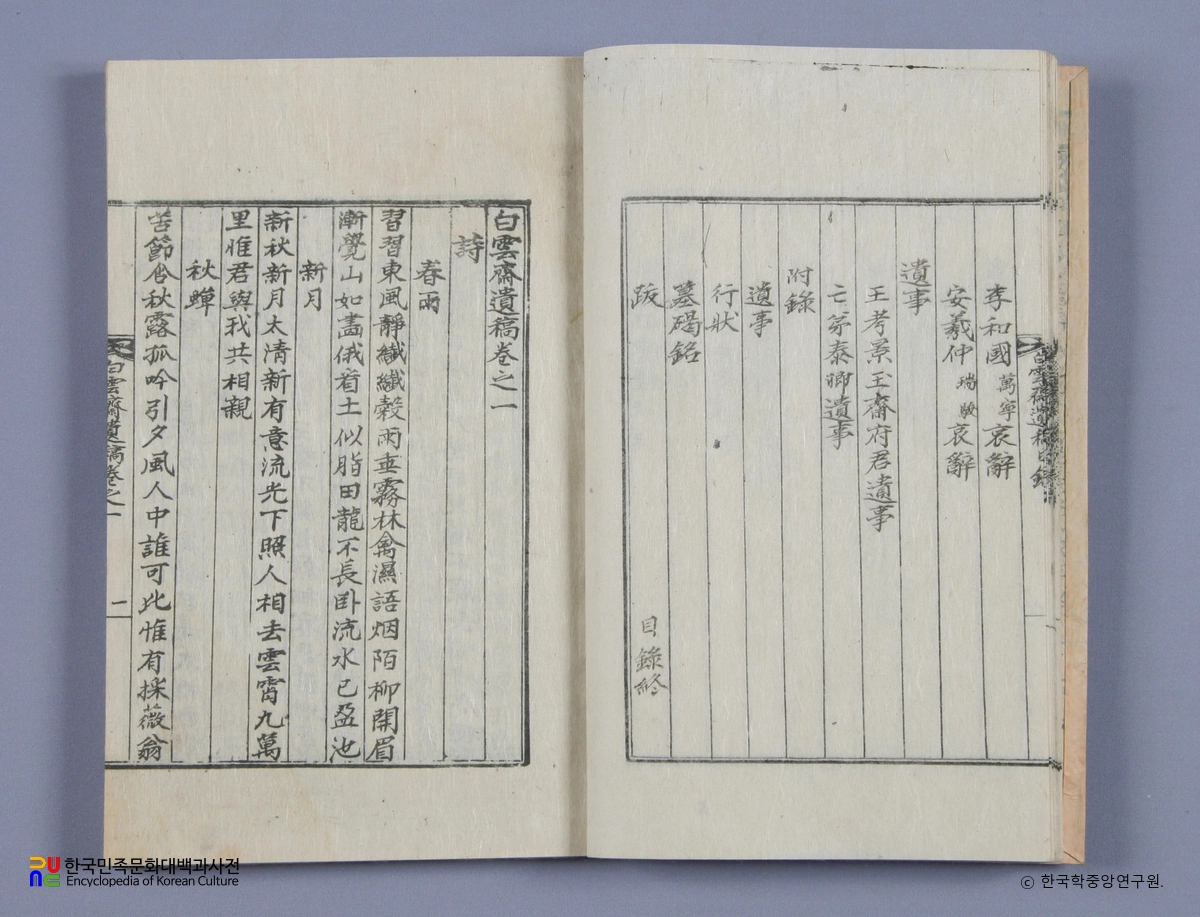 李和國萬寧哀辭
安羲仲瑞畯哀辭
遺事
王考景玉齋府君遺事
亡弟泰卿遺事
附錄
遺事
行狀
墓碣銘
跋
目錄終
白雲齋遺稿目錄
白雲齋遺稿卷之一
詩
春雨
習習東風靜纖纖穀雨垂霧林禽濕語烟陌柳開眉
漸覺山如畵俄看土似脂田龍不長卧流水已盈池
新月
新秋新月太清新有意流光下照人相去雲霄九萬
里惟君與我共相親
秋蟬
苦節含秋露孤吟引夕風人中誰可比惟有採薇翁
白雲齋遺稿卷之一
一
한국민족문화대백과사전
Encyclopedia of Korean Culture
© 한국학중앙연구원.